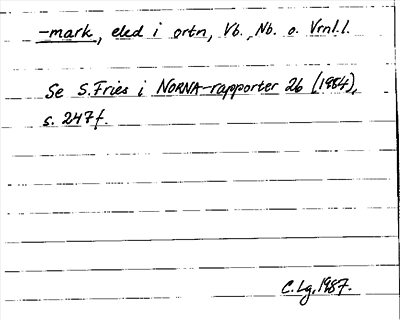 -mark, eled i ortn, Vb., Nb. o. Vrml.l.
Se S.Fries i NORNA-rapporter 26 (1984),
s. 247f.
C.Lg, 1987.